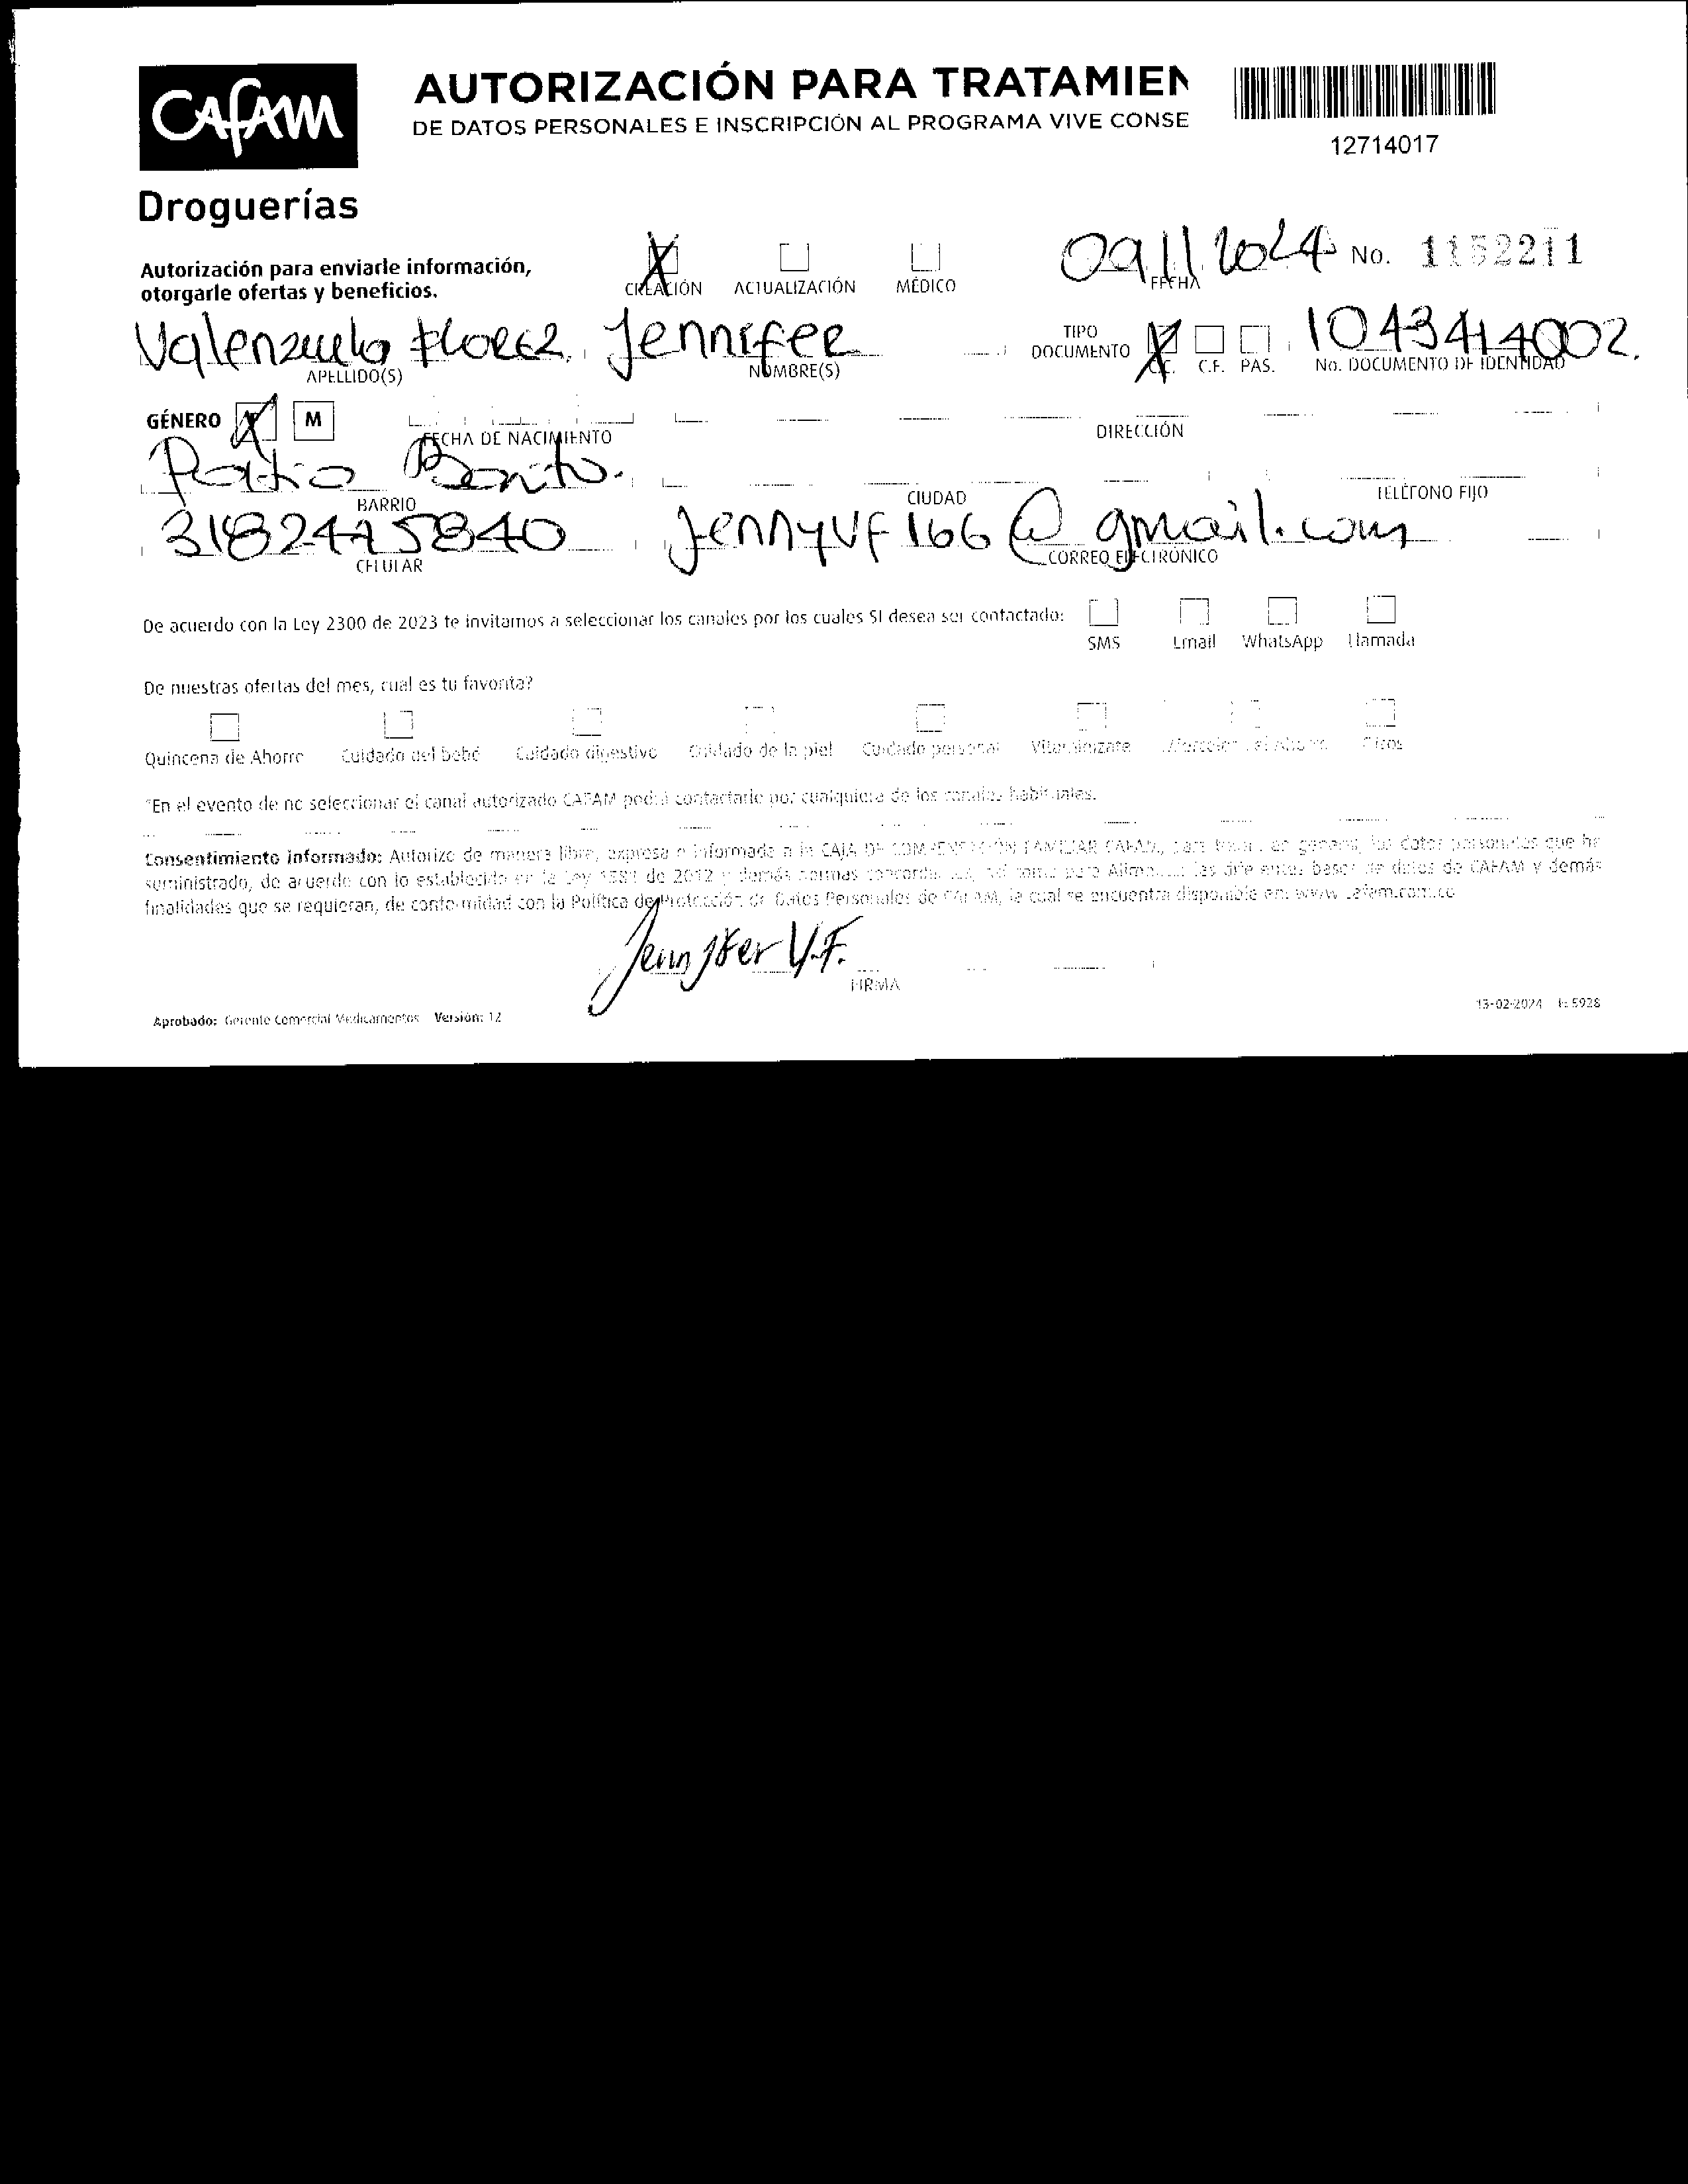 CAFAM
Droguerías
AUTORIZACIÓN PARA TRATAMIEN
DE DATOS PERSONALES E INSCRIPCIÓN AL PROGRAMA VIVE CONSE
12714017
Autorización para enviarle información,
otorgarle ofertas y beneficios.
X CREACIÓN ACTUALIZACIÓN MÉDICO
09 11 2024 No. 1152211
FECHA
Valenzuela Florez Jennifer
APELLIDO(S) NOMBRE(S)
TIPO DOCUMENTO X C.C. C.E. PAS. 1043414002.
No. DOCUMENTO DE IDENTIDAD
GÉNERO X M
FECHA DE NACIMIENTO DIRECCIÓN
Patio Bonito.
BARRIO CIUDAD TELÉFONO FIJO
jennyvf166@gmail.com
CELULAR CORREO ELECTRÓNICO
De acuerdo con la Ley 2300 de 2023 te invitamos a seleccionar los canales por los cuales SI desea ser contactado:
SMS Email WhatsApp Llamada
De nuestras ofertas del mes, cual es tu favorita?
Quincena de Ahorro Cuidado del bebé Cuidado digestivo Cuidado de la piel Cuidado personal Vitaminízate Otros
*En el evento de no seleccionar el canal autorizado CAFAM podrá contactarle por cualquiera de los canales habituales.
Consentimiento informado: Autorizo de manera libre, expresa e informada a la CAJA DE COMPENSACIÓN FAMILIAR CAFAM, para tratar, en general, los datos personales que he
suministrado, de acuerdo con lo establecido en la Ley 1581 de 2012 y demás normas las diferentes bases de datos de CAFAM y demás
finalidades que se requieran, de conformidad con la Política de Protección de Datos Personales de CAFAM, la cual se encuentra disponible en: www.cafam.com.co
Jennifer V.F.
FIRMA
Aprobado: Gerente Comercial Medicamentos Versión: 12
13-02-2024 5928